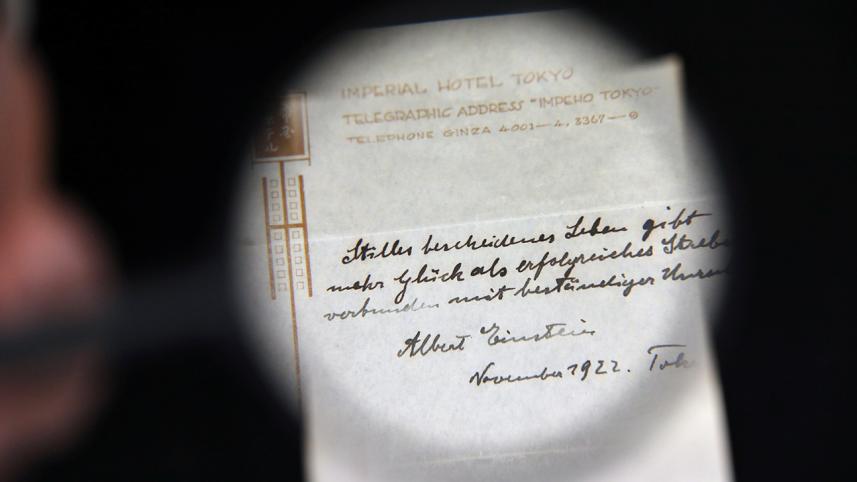 IMPERIAL HOTEL TOKYO
TELEGRAPHIC ADDRESS "IMPEHO TOKYO"
TELEPHONE GINZA 4001—4, 3367—9
テル
Stilles bescheidenes Leben gibt
mehr Glück als erfolgreiches Strebe
verbunden mit beständiger Unru
Albert Einstein
November 1922. Tok